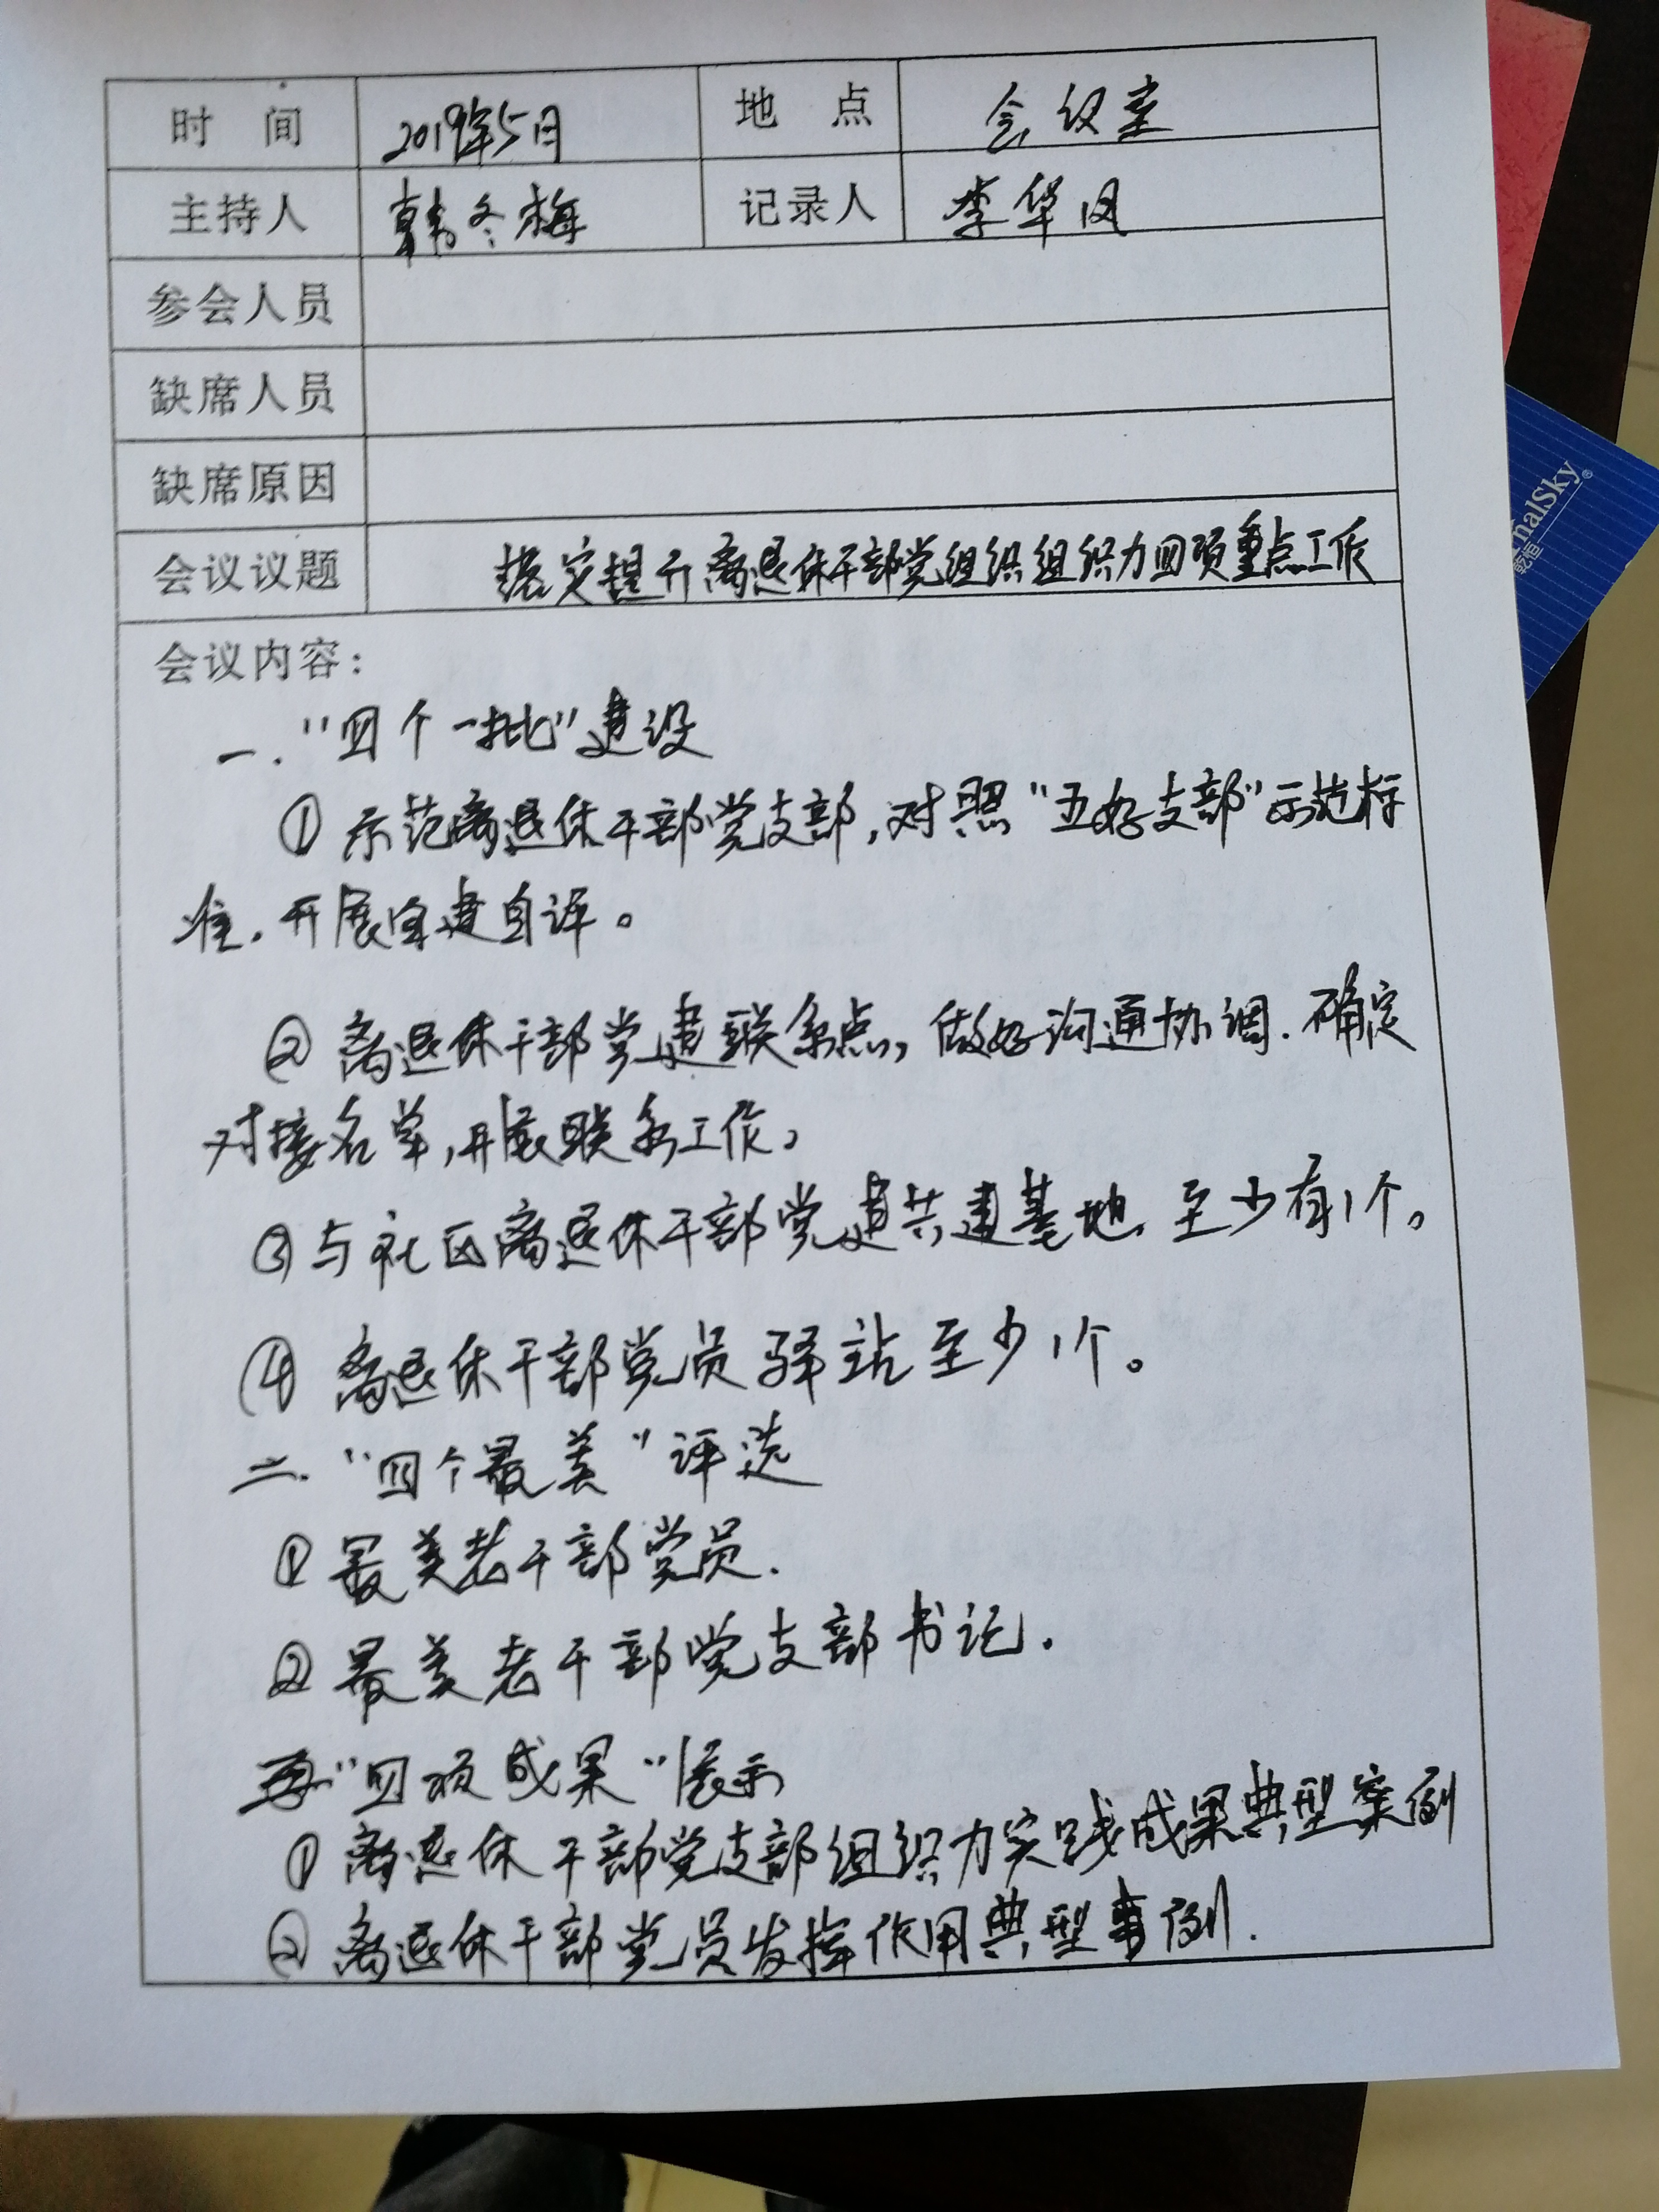 时 间 2019年5月 地 点 会议室
主持人 韩冬梅 记录人 李华凤
参会人员
缺席人员
缺席原因
会议议题 落实提升离退休干部党组织组织力四项重点工作
会议内容:
一."四个一批"建设
① 示范离退休干部党支部,对照"五好支部"示范标
准.开展自建自评。
② 离退休干部党建联系点,做好沟通协调.确定
对接名单,开展联系工作。
③与社区离退休干部党建共建基地.至少有1个。
④ 离退休干部党员驿站至少1个。
二."四个最美"评选
①最美老干部党员.
②最美老干部党支部书记.
"四项成果"展示
①离退休干部党支部组织力实践成果典型案例
②离退休干部党员发挥作用典型事例.
nalSky®
乾恒